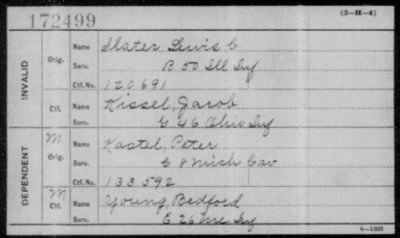 172499
(3-H-4)
INVALID
Orig.
Name Slater, Lewis C
Serv. B 50 Ill Inf
Ctf. No. 120691
Ctf.
Name Kissel, Jacob
Serv. G 46 Ohio Inf
DEPENDENT
M
Orig.
Name Kastel, Peter
Serv. G 8 Mich Cav
Ctf. No. 133592
M
Ctf.
Name Young, Bedford
Serv. E 26 Me Inf